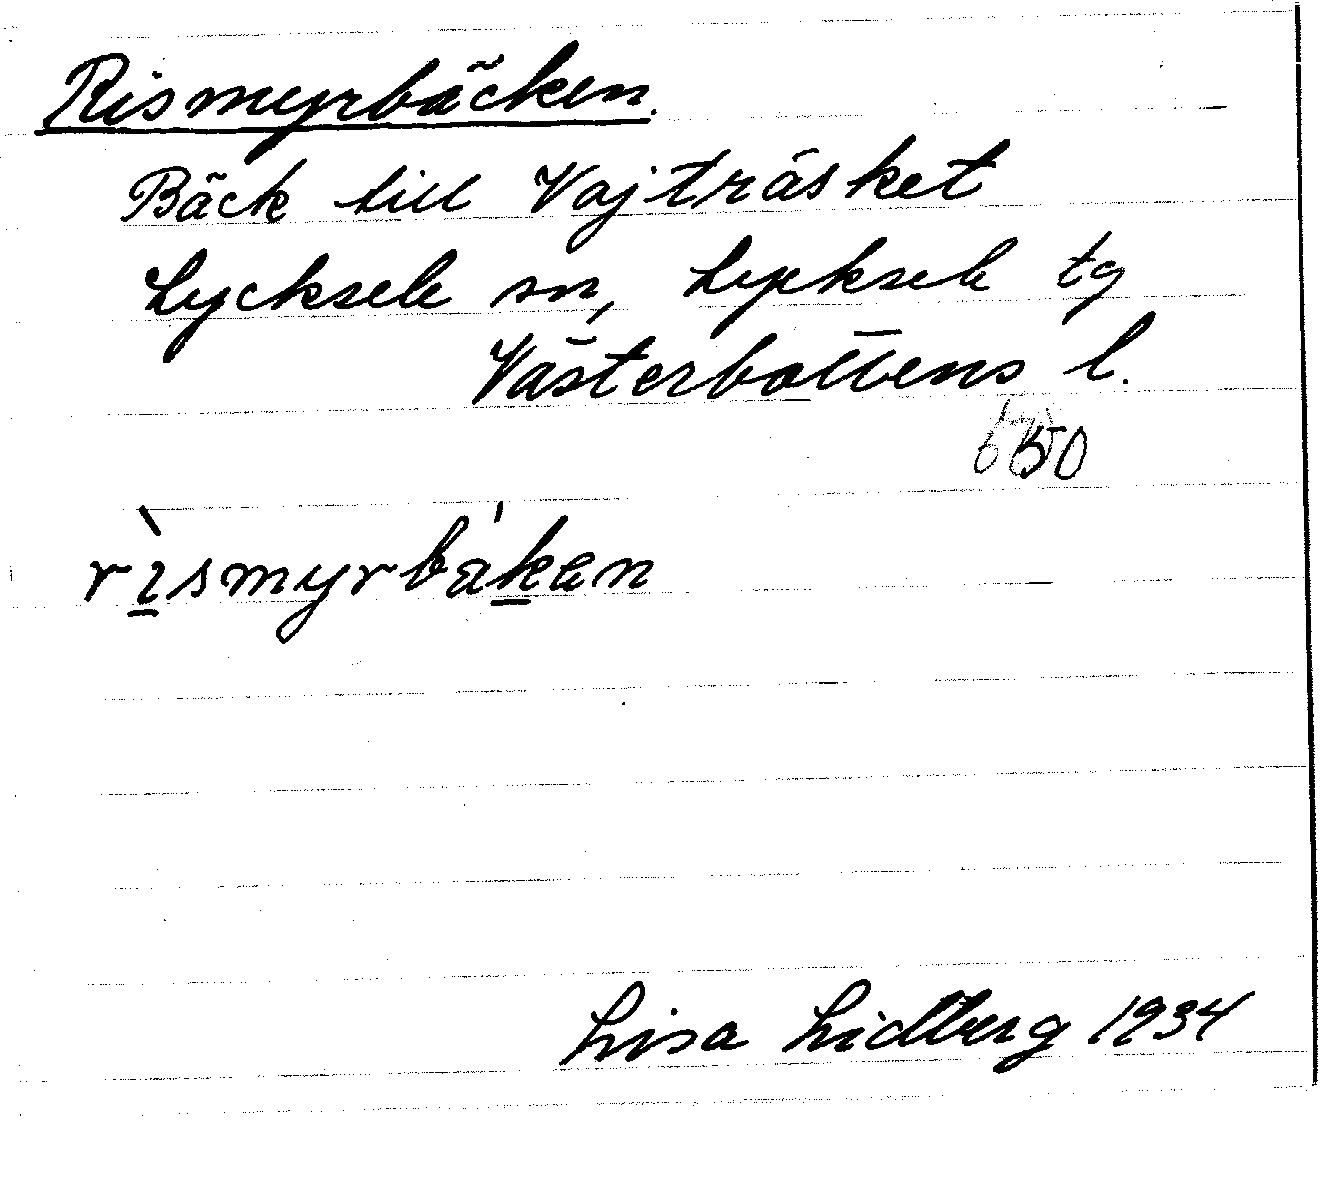 Rismyrbäcken.
Bäck till Vajträsket
Lycksele sn, Lycksele tg
Västerbottens l.
rismyrbäkan
Lisa Lidberg 1934